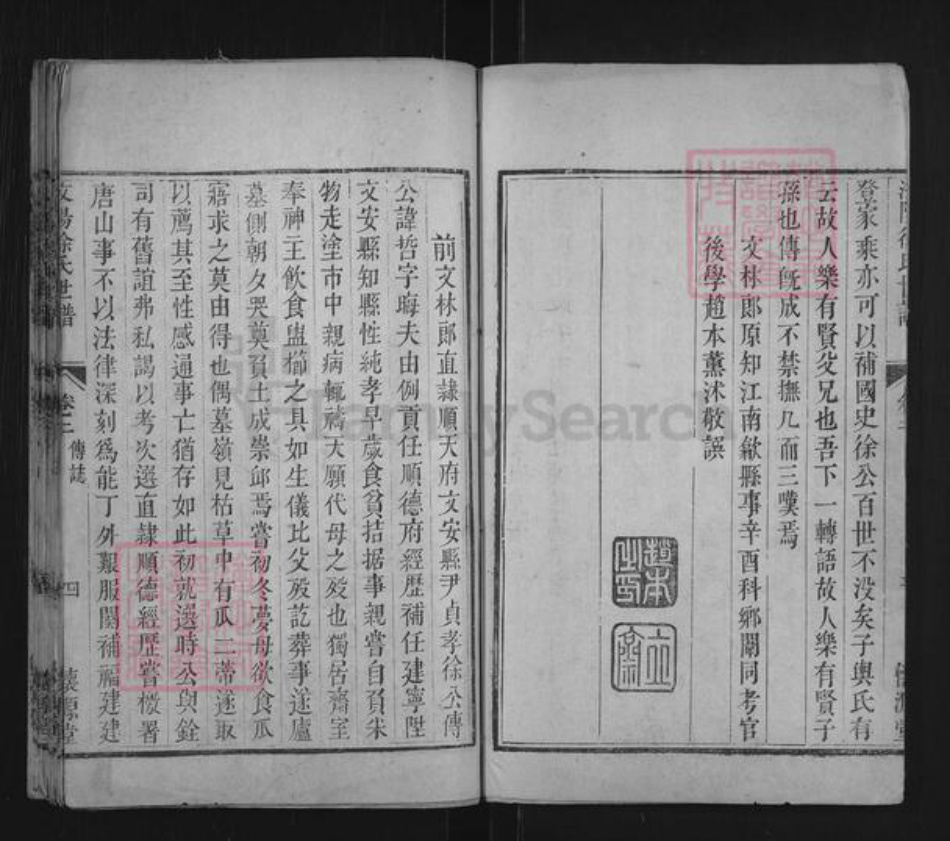 登家乘亦可以補國史徐公百世不没矣子輿氏有
云故人樂有賢父兄也吾下一轉語故人樂有賢子
孫也傳旣成不禁撫几而三嘆焉
文林郎原知江南歙縣事辛酉科鄉闈同考官
後學趙本薰沭敬譔
趙本之印
前文林郎直隸順天府文安縣尹貞孝徐公傳
公諱哲字晦夫由例貢任順德府經歷補任建寧陞
文安縣知縣性純孝早歲食貧拮据事親嘗自負米
物走塗市中親病輒禱天願代母之歿也獨居齋室
奉神主飲食盥櫛之具如生儀比父歿訖葬事遂廬
墓側朝夕哭奠負土成崇邱焉嘗初冬夢母欲食瓜
寤求之莫由得也偶墓嶺見枯草中有瓜二蒂遂取
以薦其至性感通事亡猶存如此初就選時公與銓
司有舊誼弗私謁以考次選直隸順德經歷嘗檄署
唐山事不以法律深刻爲能丁外艱服闋補福建建
汶陽徐氏世譜
卷三
傳誌
四
懷源堂
FamilySearch